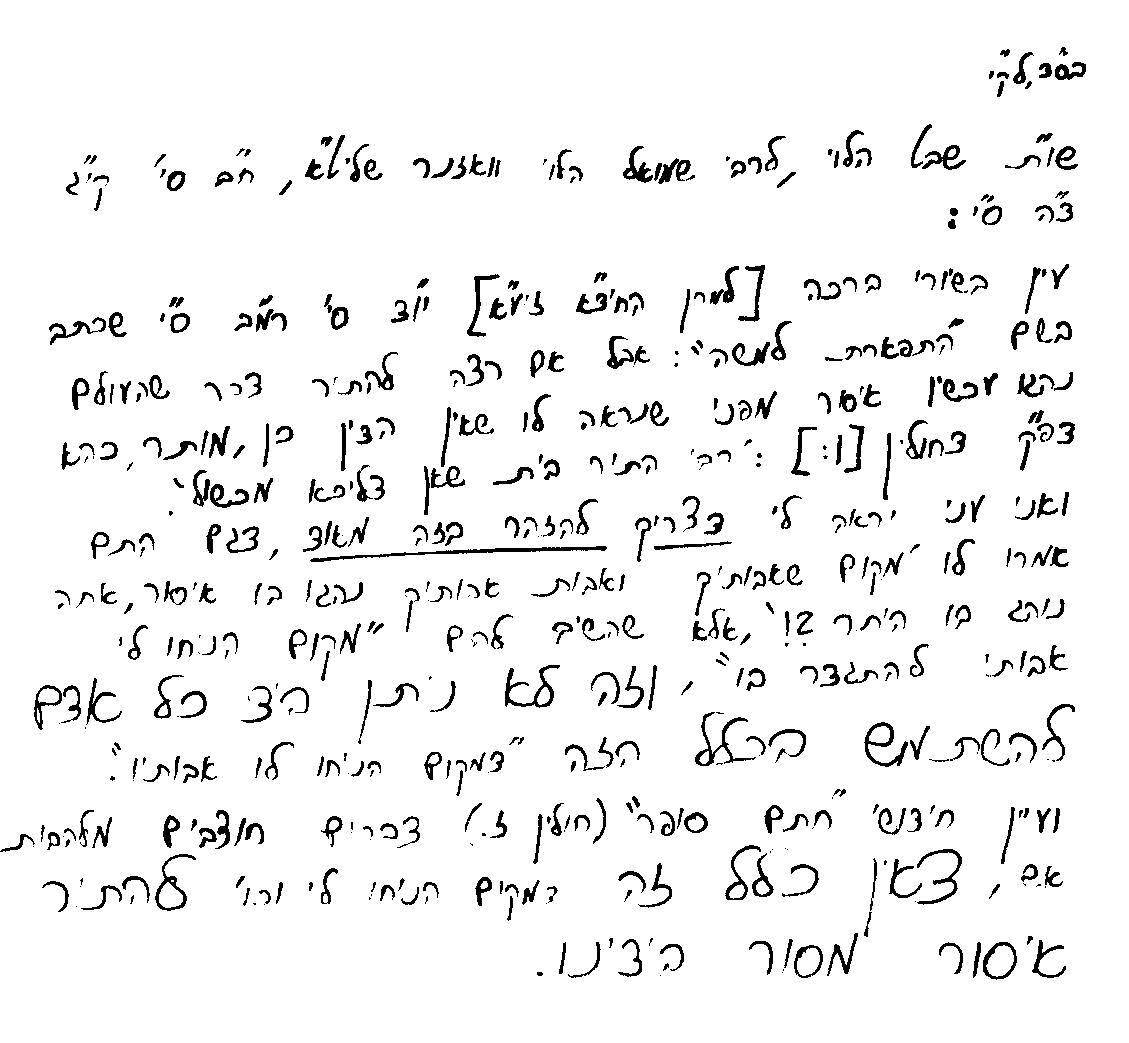 בס"ד, לק"י
שו"ת שבט הלוי, לרבי שמואל הלוי וואזנר שליט"א, ח"ב סי' קי"ג
ד"ה ס"י:
עיין בשיורי ברכה [למרן החיד"א זיע"א] יו"ד סי' רמ"ב ס"י שכתב
בשם "התפארת למשה": אבל אם רצה להתיר דבר שהעולם
נהגו עכשיו איסור מפני שנראה לו שאין הדין כן, מותר, כההא
דפ"ק דחולין [ו:]: "רבי התיר בית שאן דליכא מכשול".
ואני עני יראה לי דצריך להזהר בזה מאוד, דגם התם
אמרו לו "מקום שאבותיך ואבות אבותיך נהגו בו איסור, אתה
נוהג בו היתר?!", אלא שהשיב להם "מקום הניחו לי
אבותי להתגדר בו", וזה לא ניתן ביד כל אדם
להשתמש בכלל הזה "דמקום הניחו לו אבותיו".
ועיין חידושי "חתם סופר" (חולין ז.) דברים חוצבים מלהבות
אש, דאין כלל זה דמקום הניחו לי וכו' להתיר
איסור מסור בידינו.